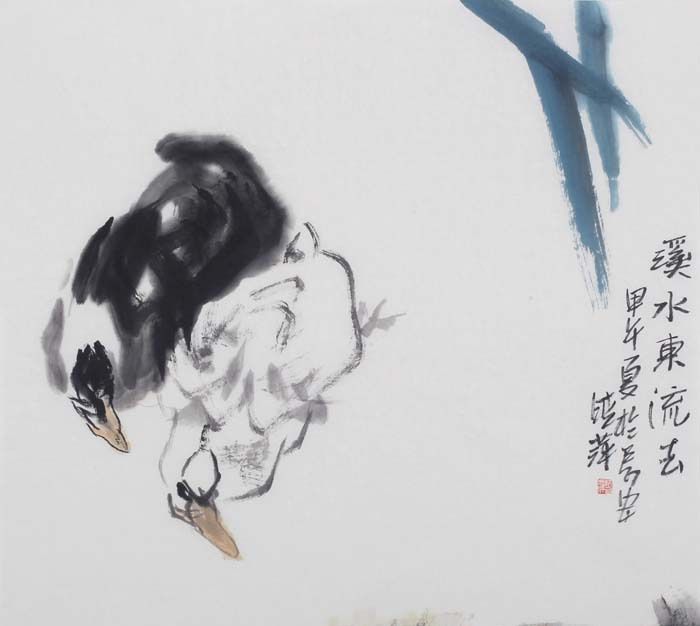 溪水東流去
甲午夏於長安